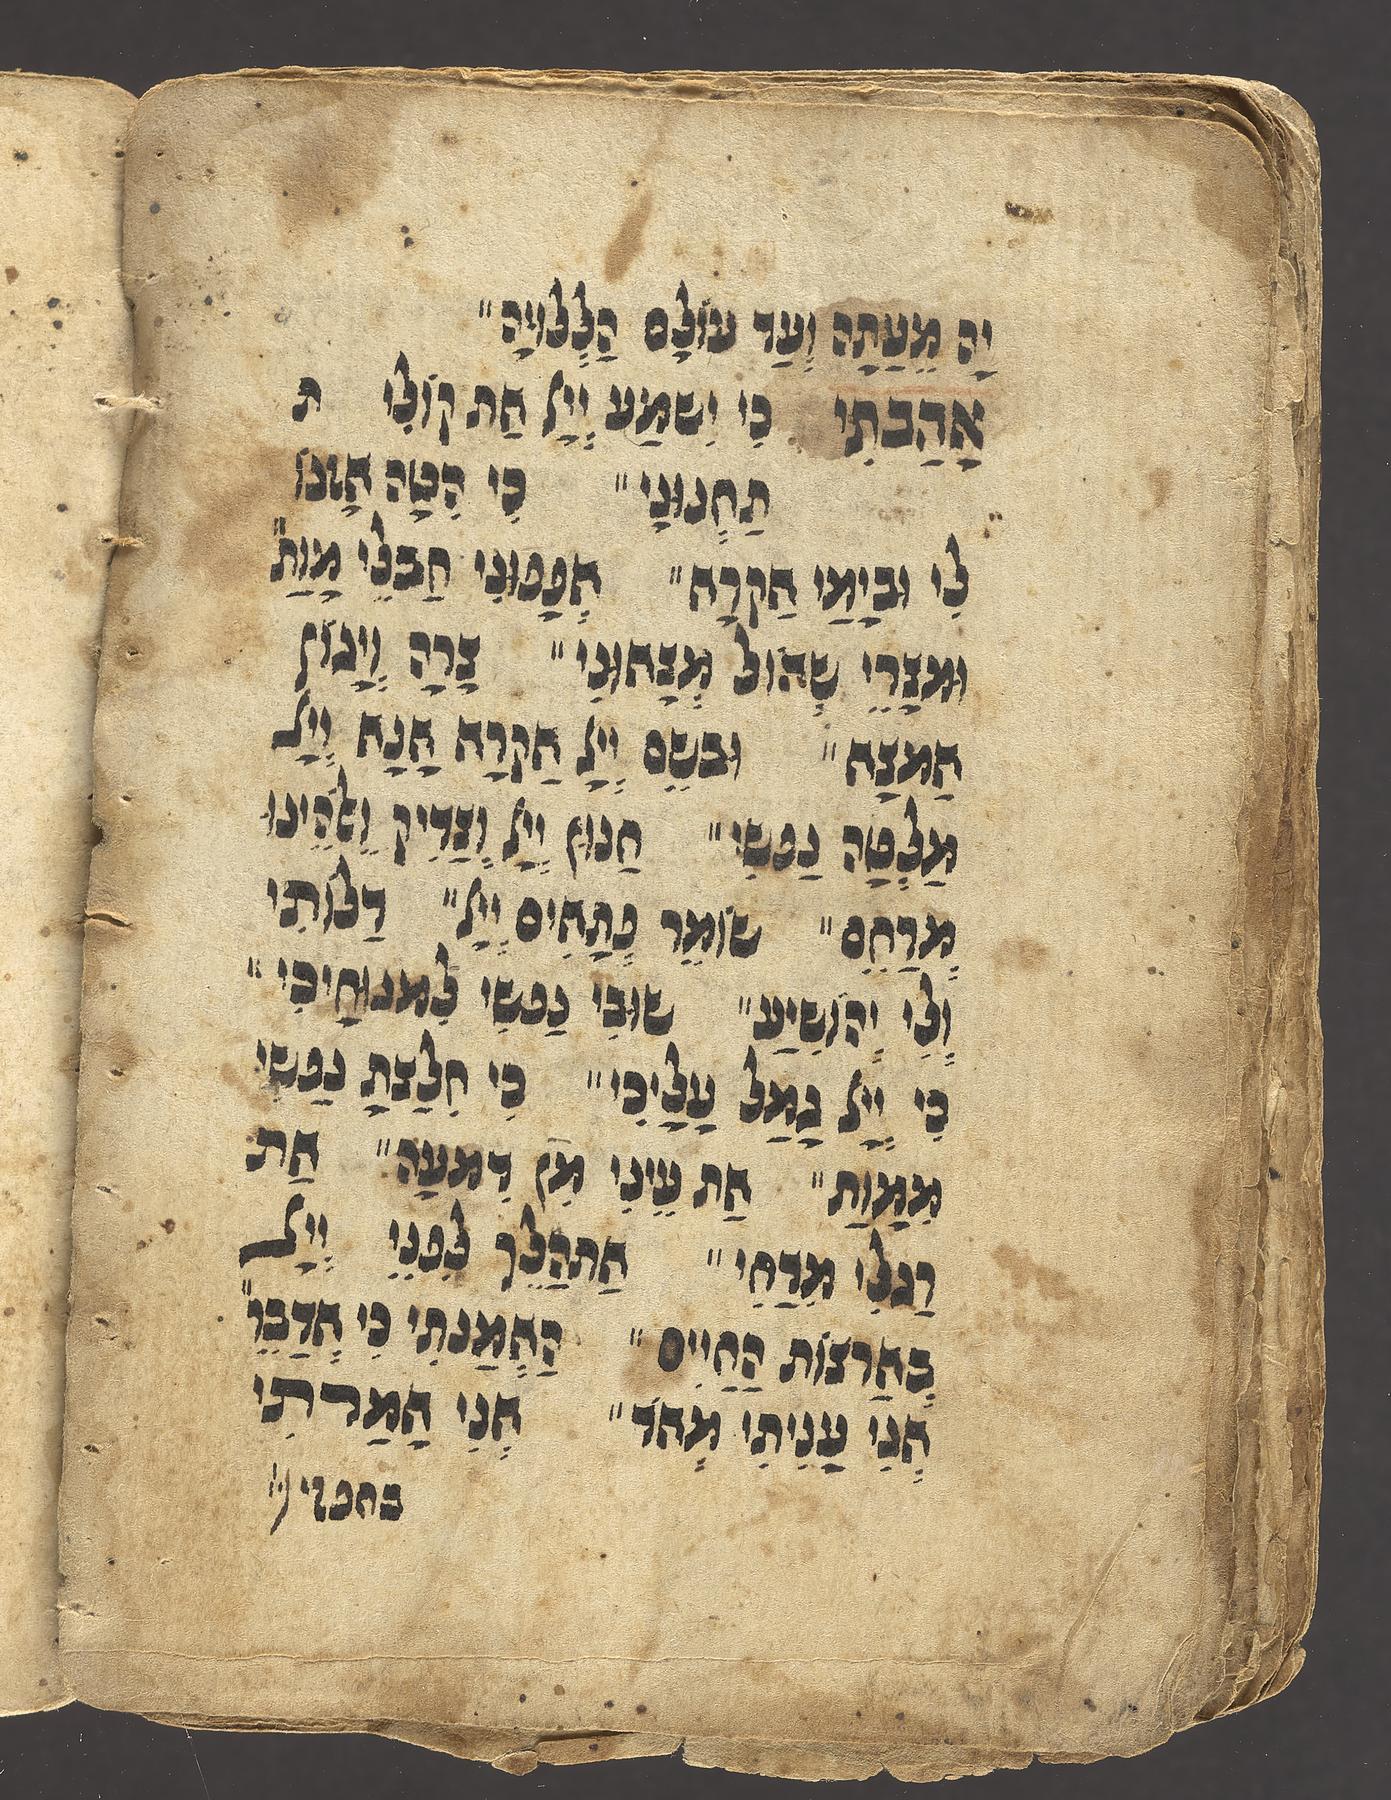 יָהּ מֵעַתָּה וְעַד עוֹלָם הַלְלוּיָהּ״
אָהַבְתִּי כִּי יִשְׁמַע יְיָ אֶת קוֹלִי ת
תַּחֲנוּנָי״ כִּי הִטָּה אָזְנוֹ
לִי וּבְיָמַי אֶקְרָא״ אֲפָפוּנִי חֶבְלֵי מָוֶת״
וּמְצָרֵי שְׁאוֹל מְצָאוּנִי״ צָרָה וְיָגוֹן
אֶמְצָא״ וּבְשֵׁם יְיָ אֶקְרָא אָנָּא יְיָ
מַלְּטָה נַפְשִׁי״ חַנּוּן יְיָ וְצַדִּיק וֵאלֹהֵינוּ
מְרַחֵם״ שׁוֹמֵר פְּתָאִים יְיָ״ דַּלּוֹתִי
וְלִי יְהוֹשִׁיעַ״ שׁוּבִי נַפְשִׁי לִמְנוּחָיְכִי״
כִּי יְיָ גָּמַל עָלָיְכִי״ כִּי חִלַּצְתָּ נַפְשִׁי
מִמָּוֶת״ אֶת עֵינִי מִן דִּמְעָה״ אֶת
רַגְלִי מִדֶּחִי״ אֶתְהַלֵּךְ לִפְנֵי יְיָ
בְּאַרְצוֹת הַחַיִּים״ הֶאֱמַנְתִּי כִּי אֲדַבֵּר״
אֲנִי עָנִיתִי מְאֹד״ אֲנִי אָמַרְתִּי
בחפזי״